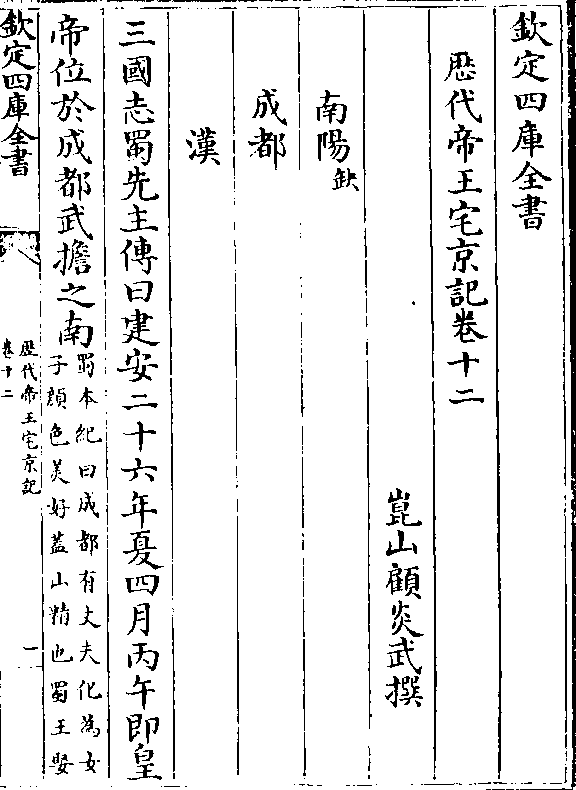 欽定四庫全書
歴代帝王宅京記卷十二
崑山顧炎武撰
南陽缺
成都
漢
三國志蜀先主傳曰建安二十六年夏四月丙午即皇
帝位於成都武擔之南
蜀本紀曰成都有丈夫化為女
子顔色美好蓋山精也蜀王娶
欽定四庫全書
歴代帝王宅京記
卷十二
一